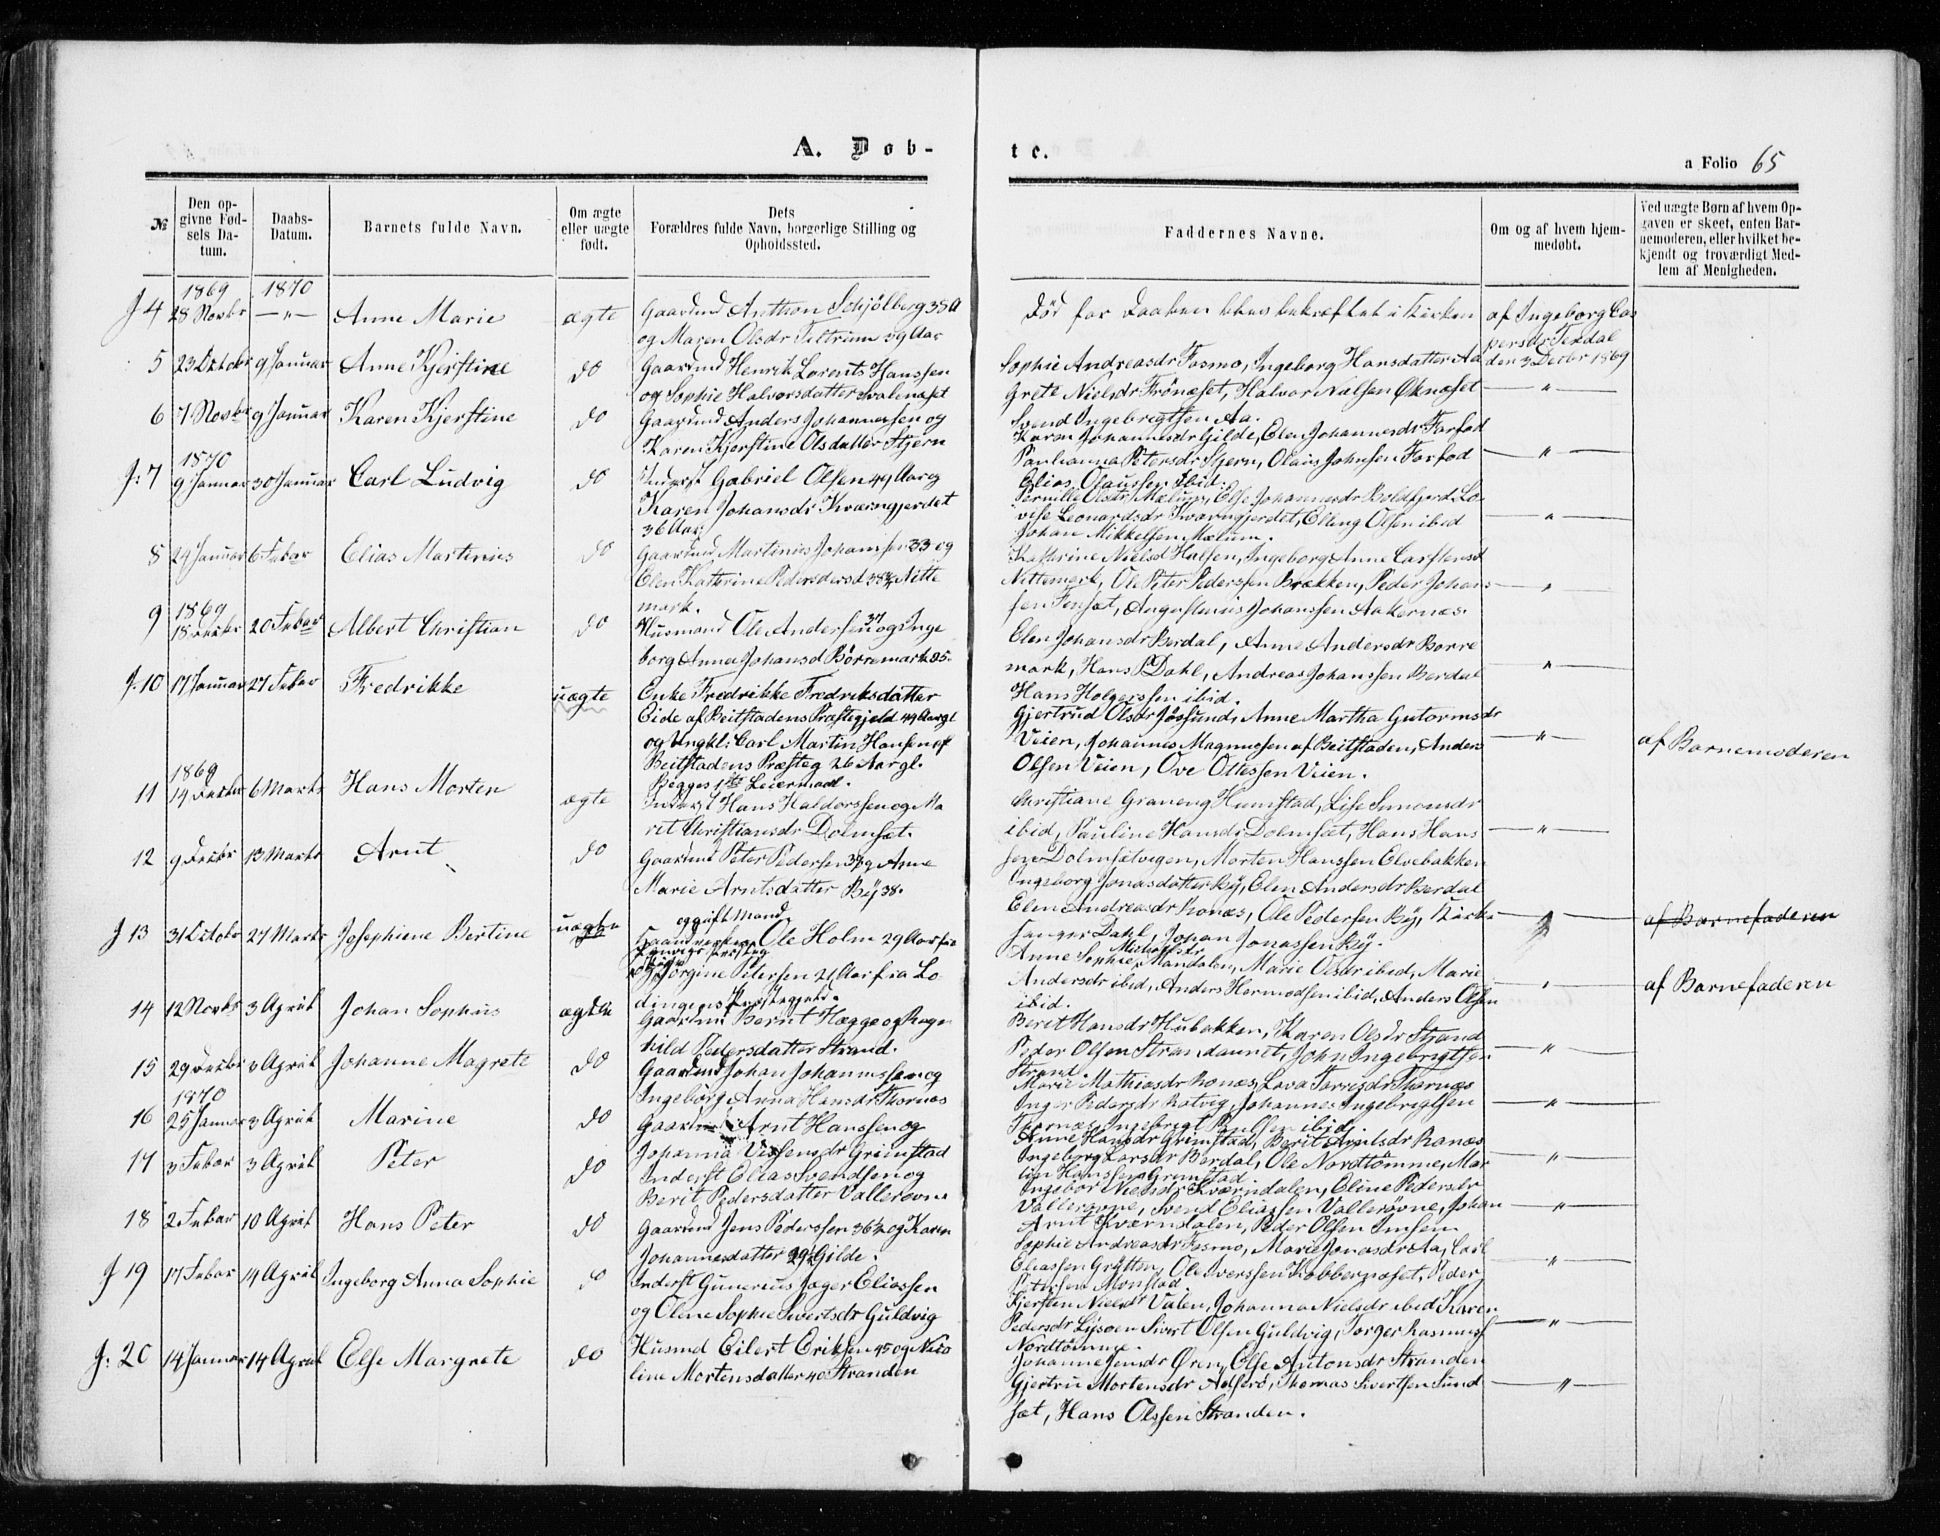 A. Døb-
te.
a Folio 65
№
Den op-
givne Fød-
sels Da-
tum.
Daabs-
Datum.
Barnets fulde Navn.
Om ægte
eller uægte
født.
Dets
Forældres fulde Navn, borgerlige Stilling og
Opholdssted.
Faddernes Navne.
Om og af hvem hjem-
medøbt.
Ved uægte Børn af hvem Op-
gaven er skeet, enten Bar-
nemoderen, eller hvilket be-
kjendt og troværdigt Med-
lem af Menigheden.
1869 1870
J 4 28 Novbr —"— Anne Marie ægte Gaardmd Anthon Schjölberg 38 A
og Maren Olsdr Tettrum 39 Aar
Död før Daaben blev bekræftet i Kirken
af Ingeborg Cas
persdr Teddal
den 3 Decbr 1869
5 23 Octobr 9 Januar Anne Kjerstine do Gaardmd Henrik Lorents Hanssen
og Sophie Halvorsdatter Svalenæset
Sophie Andreasdr Fosmo, Ingeborg Hansdatter Aa
Grete Nielsdr Frönæset, Halvor Nilsen Öknæset —"—
Svend Ingebrigtsen Aa.
6 7 Novbr 9 Januar Karen Kjerstine do Gaardmd Anders Johannessen og
Karen Kjerstine Olsdatter Stjern
Karen Johannesdr Gilde, Elen Johannesdr Forfod
Paulianna Petersdr Stjern, Olaus Johnsen Forfod —"—
Elias Olaussen Ibid.
1870
J. 7 9 Januar 30 Januar Carl Ludvig do Inderst Gabriel Olsen 49 Aar og
Karen Johansdr Kværngjerdet
36 Aar
Pernille Olsdr Mælum, Else Johannesdr Boldfjord Lo
vise Leonardsdr Kvarngjerdet, Elling Olsen ibid —"—
Johan Mikkelsen Mælum.
8 24 Januar 6 Febar Elias Martinius do Gaardmd Martinus Johanssen 33 og
Elen Katrine Pedersdersd 38 3/4 Nitte
mark.
Kathrine Nielsd Halsen, Ingeborg Anne Carstensd
Nittemark, Ole Peter Pederssen Brækken, Peder Johans —"—
sen Fensæt, Angerstenius Johanssen Aakernæs.
1869
9 18 Decbr 20 Febar Albert Christian do Husmand Ole Andersen 37 og Inge
borg Anna Johansd Börremark 35.
Elen Johansdr Berdal, Anne Andersdr Borre
mark, Hans P Dahl, Andreas Johanssen Berdal —"—
Hans Holgerssen ibid.
J. 10 17 Januar 27 Febar Fredrikke uægte Enke Fredrikke Fredriksdatter
Eide af Beitstadens Præstegjeld 44 Aar gl
og Ungkl: Carl Martin Hansen af
Beitstadens Præsteg 26 Aar gl.
Begges 1ste Leiermaal.
Gjertrud Olsdr Jössund, Anne Martha Gutormsdr
Veien, Johannes Magnussen af Beitstaden, Anders —"— af Barnemoderen
Olsen Veien, Ove Ottessen Veien.
1869
11 14 Decbr 6 Marts Hans Morten ægte Inderst Hans Haldorssen og Ma
rit Christiansdr Dolmsæt.
Christiane Graneng Humstad, Lise Simonsdr
ibid, Pauline Hansdr Dolmsæt, Hans Hans —"—
sen Dolmsætvigen, Morten Hanssen Elvebakken
12 9 Decbr 13 Marts Arnt do Gaardmd Peter Pedersen 37 og Anne
Marie Arntsdatter By 38.
Ingeborg Jonasdatter By, Elen Andersdr Berdal
Elen Andreasdr Ronæs, Ole Pedersen By, Kirke —"— af Barnefaderen
sanger Dahl, Johan Jonassen By.
J 13 31 Octobr 27 Marts Josephiene Bertine uægte Haandverker Ole Holm 29 Aar fra
e. gift Mand.
Jörgine Petersen 21 Aar fra Lo
dingens Præstegjeld.
Anne Sophie Mandalen, Marie Olsdr ibid, Marie
Andersdr ibid, Anders Hermodsen ibid, Anders Olsen —"— af Barnefaderen
ibid.
14 12 Novbr 3 April Johan Sophus ægte Gaardmd Bernt Hægge og Ragn
hild Pedersdatter Strand.
Berit Hansdr Hubakken, Karen Olsdr Strand
Peder Olsen Strandaunet, John Ingebrigtsen —"—
Strand.
15 29 Decbr 3 April Johanne Magrete do Gaardmd Johan Johannssen og
Ingeborg Anna Hansdr Thornæs
Marie Mathiasdr Ronæs, Lova Torrisdr Thornæs
Inger Pedersdr Ratvig, Johannes Ingebrigtsen —"—
Thornæs, Ingebrigt ibid.
1870
16 25 Januar 3 April Marine do Gaardmd Arnt Hanssen og
Johanna Grimstad
Anne Hansdr Grimstad, Berit Arntsdr Ronæs
Ingeborg Larsdr Berdal, Ole Nordtömme, Mar —"—
tin Hanssen Grimstad
17 3 Febar 3 April Peter do Inderst Elias Svendsen og
Berit Pedersdatter Vallerøvne
Ingebor Nielsdr Kværndalen, Eline Pedersdr
Valleröyne, Svend Eliassen Valleröyne, Johan —"—
Arnt Kværndalen, Peder Olsen
18 2 Febar 10 April Hans Peter do Gaardmd Jens Pederssen 36 1/2 og Karen
Johannedatter 29 1/2 Gilde.
Sophie Andreasdr Fosmo, Marie Jonasdr Aa, Carl
Eliassen Gryttin, Ole Iverssen Kobbernæset, Peder —"—
Petersen Monstad.
J 19 17 Febar 14 April Ingeborg Anna Sophie do Inderst Gunerius Jæger Eliassen
og Olene Sophie Sivertsdr Guldvig
Kjersten Nielsdr Valen, Johanna Nielsdr ibid Karen
Pedersdr Lysöen Sivert Olsen Guldvig, Torger Rasmuss —"—
Nordtömme.
J. 20 14 Januar 14 April Else Margrete do Husmd Eilert Eriksen 45 og Nico
line Mortensdatter 40 Stranden
Johannesensdr Ören, Else Antonsdr Stranden
Gjertru Mortensdr Adserö, Thomas Sivertsen Sund —"—
sæt, Hans Olssen Stranden.